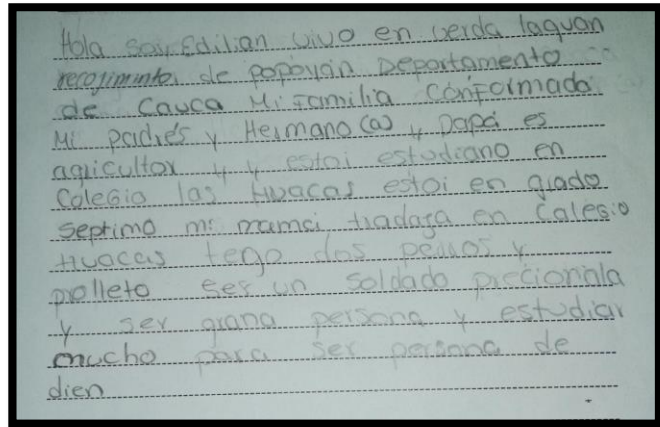 Hola soy Edilian vivo en verda laguan
recojiminto de popoyán Departamento
de Cauca Mi Familia Conformada
Mi padres y Hermano (a) y Papá es
agricultor y y estoi estudiano en
Colegio las Huacas estoi en grado
septimo mi mamá tradaga en Calegio
Huacas tego dos perros y
prolleto ser un soldado precionnla
y ser grana persona y estudiar
mucho para ser persona de
dien